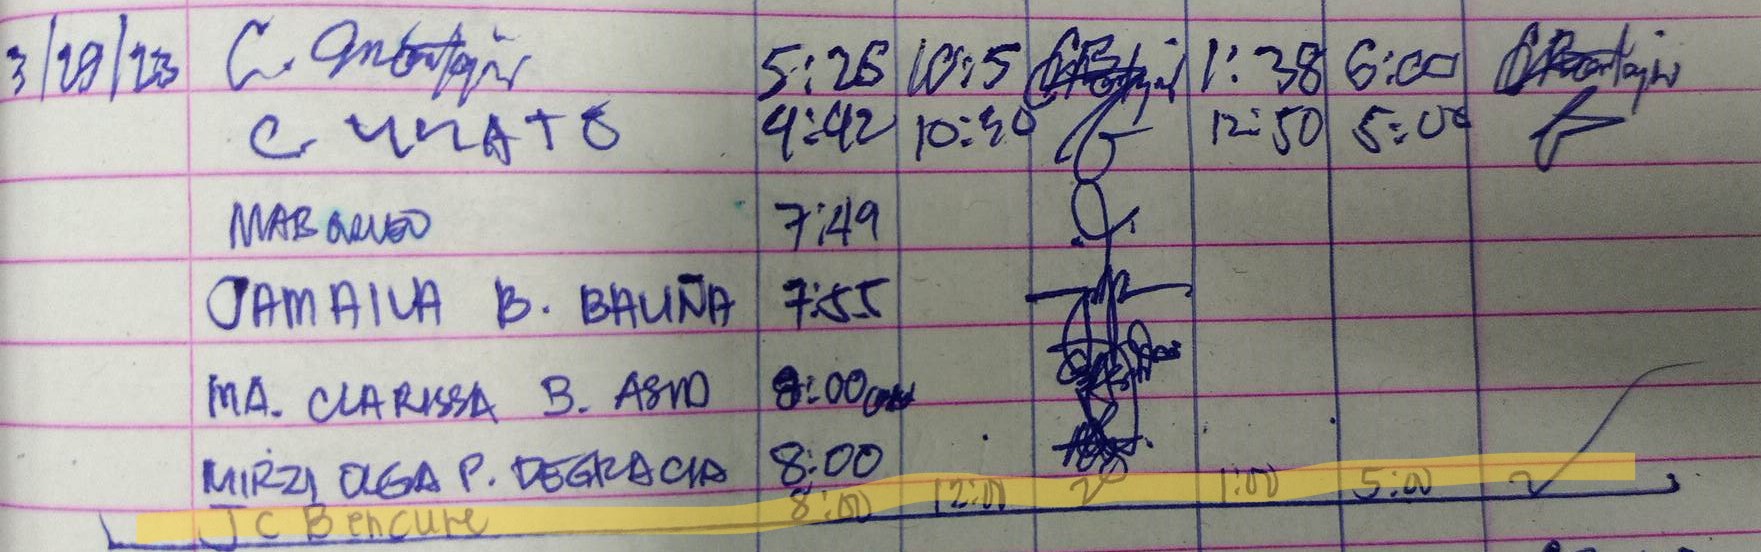 3/29/23 C. Montajir 5:26 10:5 1:38 6:00
C. 4:42 10:30 12:50 5:00
7:49
JAMAILA B. BALIÑA 7:55
MA. CLARISSA B. ASIO 8:00
MIRZI OLGA P. DEGRACIA 8:00
JC Bencure 8:00 12:00 1:00 5:00